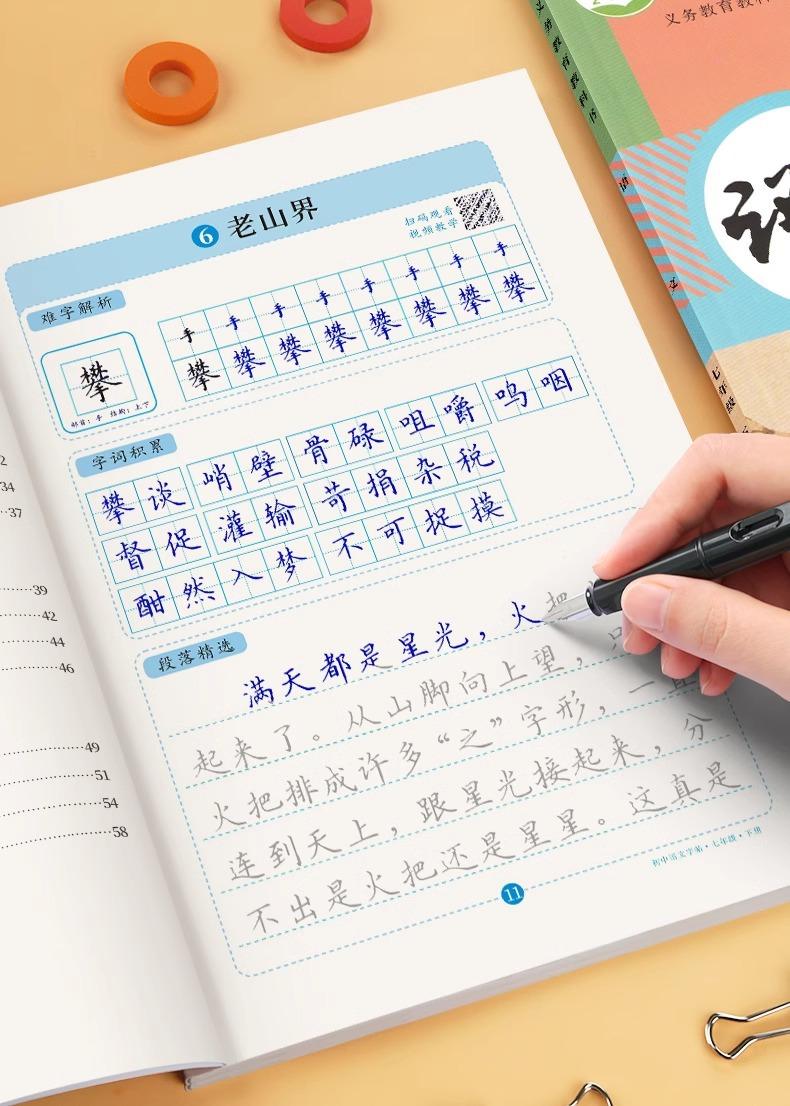 6 老山界
扫码观看
视频教学
难字解析
手 手 手 手 手 手 手 手
攀 攀 攀 攀 攀 攀 攀 攀
攀
部首：手 结构：上下
字词积累
攀谈 峭壁 骨碌 咀嚼 呜咽
督促 灌输 苛捐杂税
酣然入梦 不可捉摸
段落精选
满天都是星光，火把
起来了。从山脚向上望，只
火把排成许多“之”字形，一直
连到天上，跟星光接起来，分
不出是火把还是星星。这真是
初中语文字帖·七年级·下册
11
2
34
37
39
42
44
46
49
51
54
58
义务教育教科
义务教育教科书
语
七年级